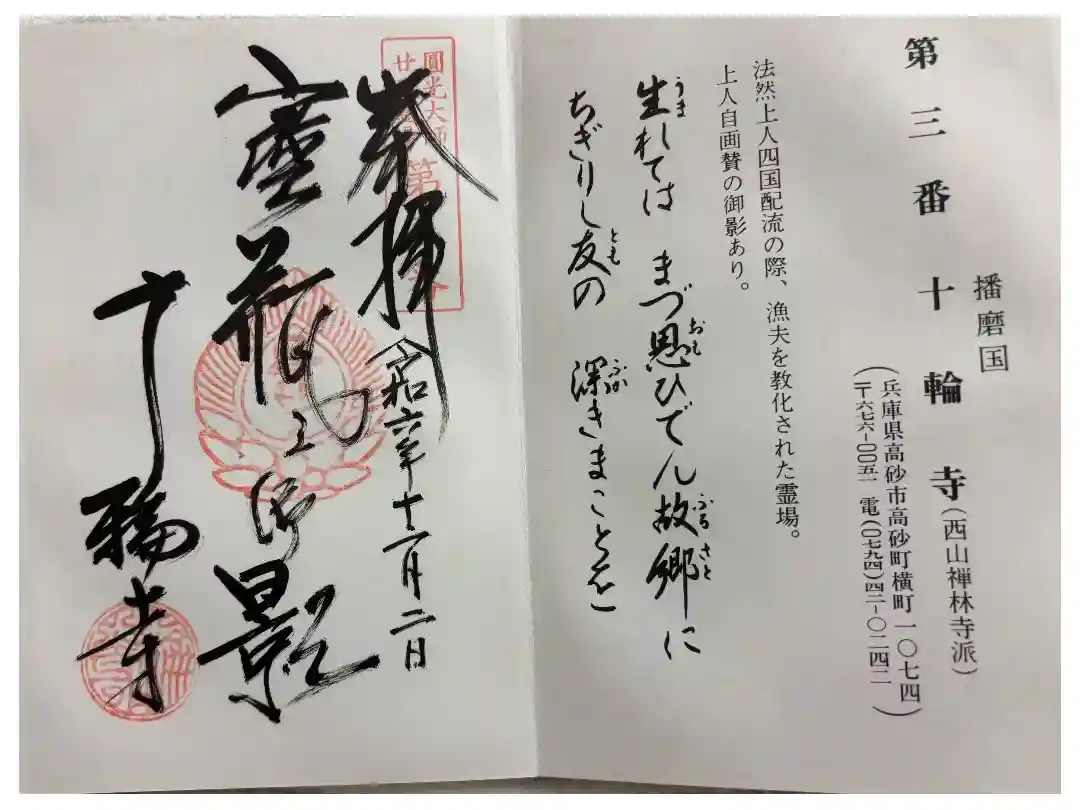 播磨国
第三番 十輪寺(西山禅林寺派)
(兵庫県高砂市高砂町横町一〇七四)
(〒六七六-〇〇五一 電(〇七九四)四二-〇二四二)
法然上人四国配流の際、漁夫を教化された霊場。
上人自画賛の御影あり。
生れては まづ思ひでん故郷に
うま おも ふるさと
ちぎりし友の 深きまことを
とも ふか
圓光大師
奉拝 令和六年十二月二日
御影
十輪寺